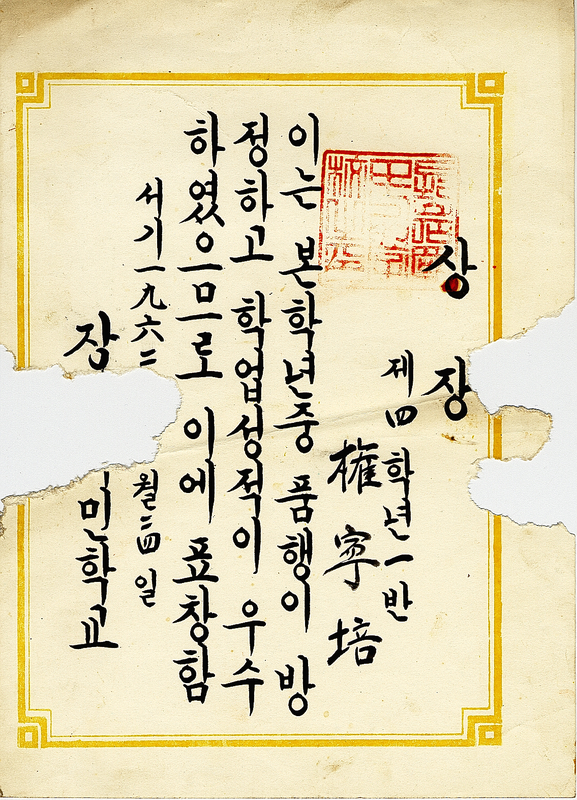 상 장
제四학년一반
權寧培
이는 본학년중 품행이 방
정하고 학업성적이 우수
하였으므로 이에 표창함
서기一九六二 월二四일
장 미학교